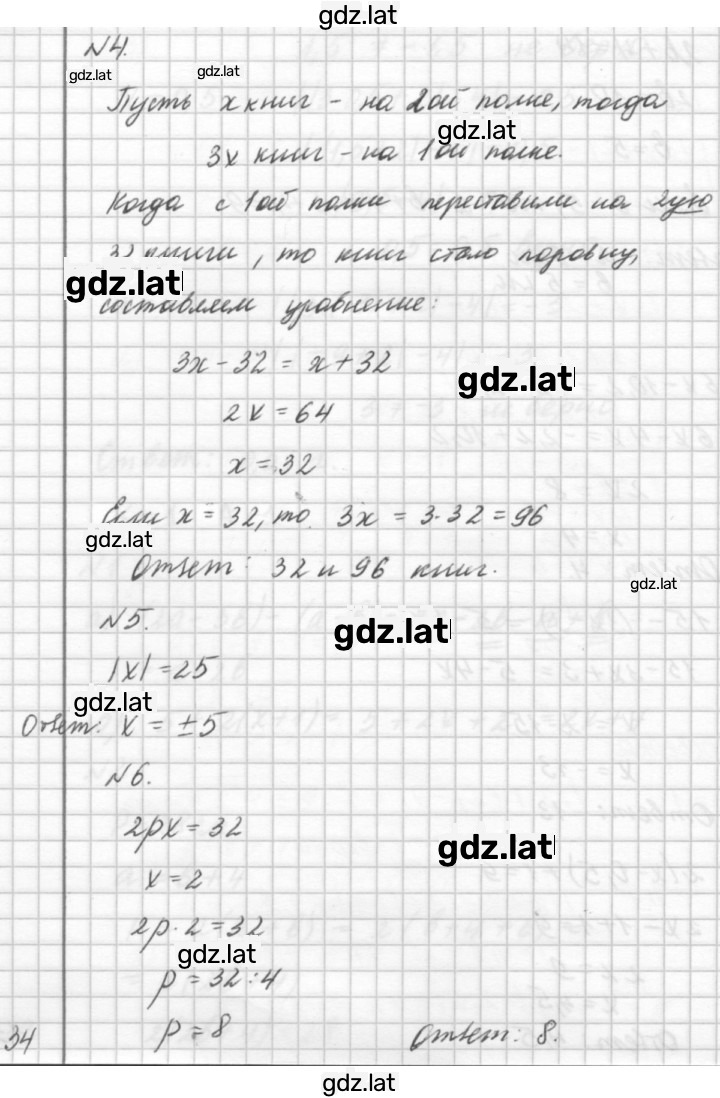 gdz.lat
N4.
gdz.lat gdz.lat
Пусть x книг - на 2ой полке, тогда
gdz.lat
3x книг - на 1ой полке.
Когда с 1ой полки переставили на 2ую
32 книги, то книг стало поровну,
gdz.lat
составляем уравнение:
3x - 32 = x + 32
gdz.lat
2x = 64
x = 32
Если x = 32, то 3x = 3·32 = 96
gdz.lat
Ответ: 32 и 96 книг.
gdz.lat
N5.
gdz.lat
|x| = 25
gdz.lat
Ответ: x = ±5
N6.
2px = 32
gdz.lat
x = 2
2p·2 = 32
gdz.lat
p = 32:4
p = 8
34 Ответ: 8.
gdz.lat